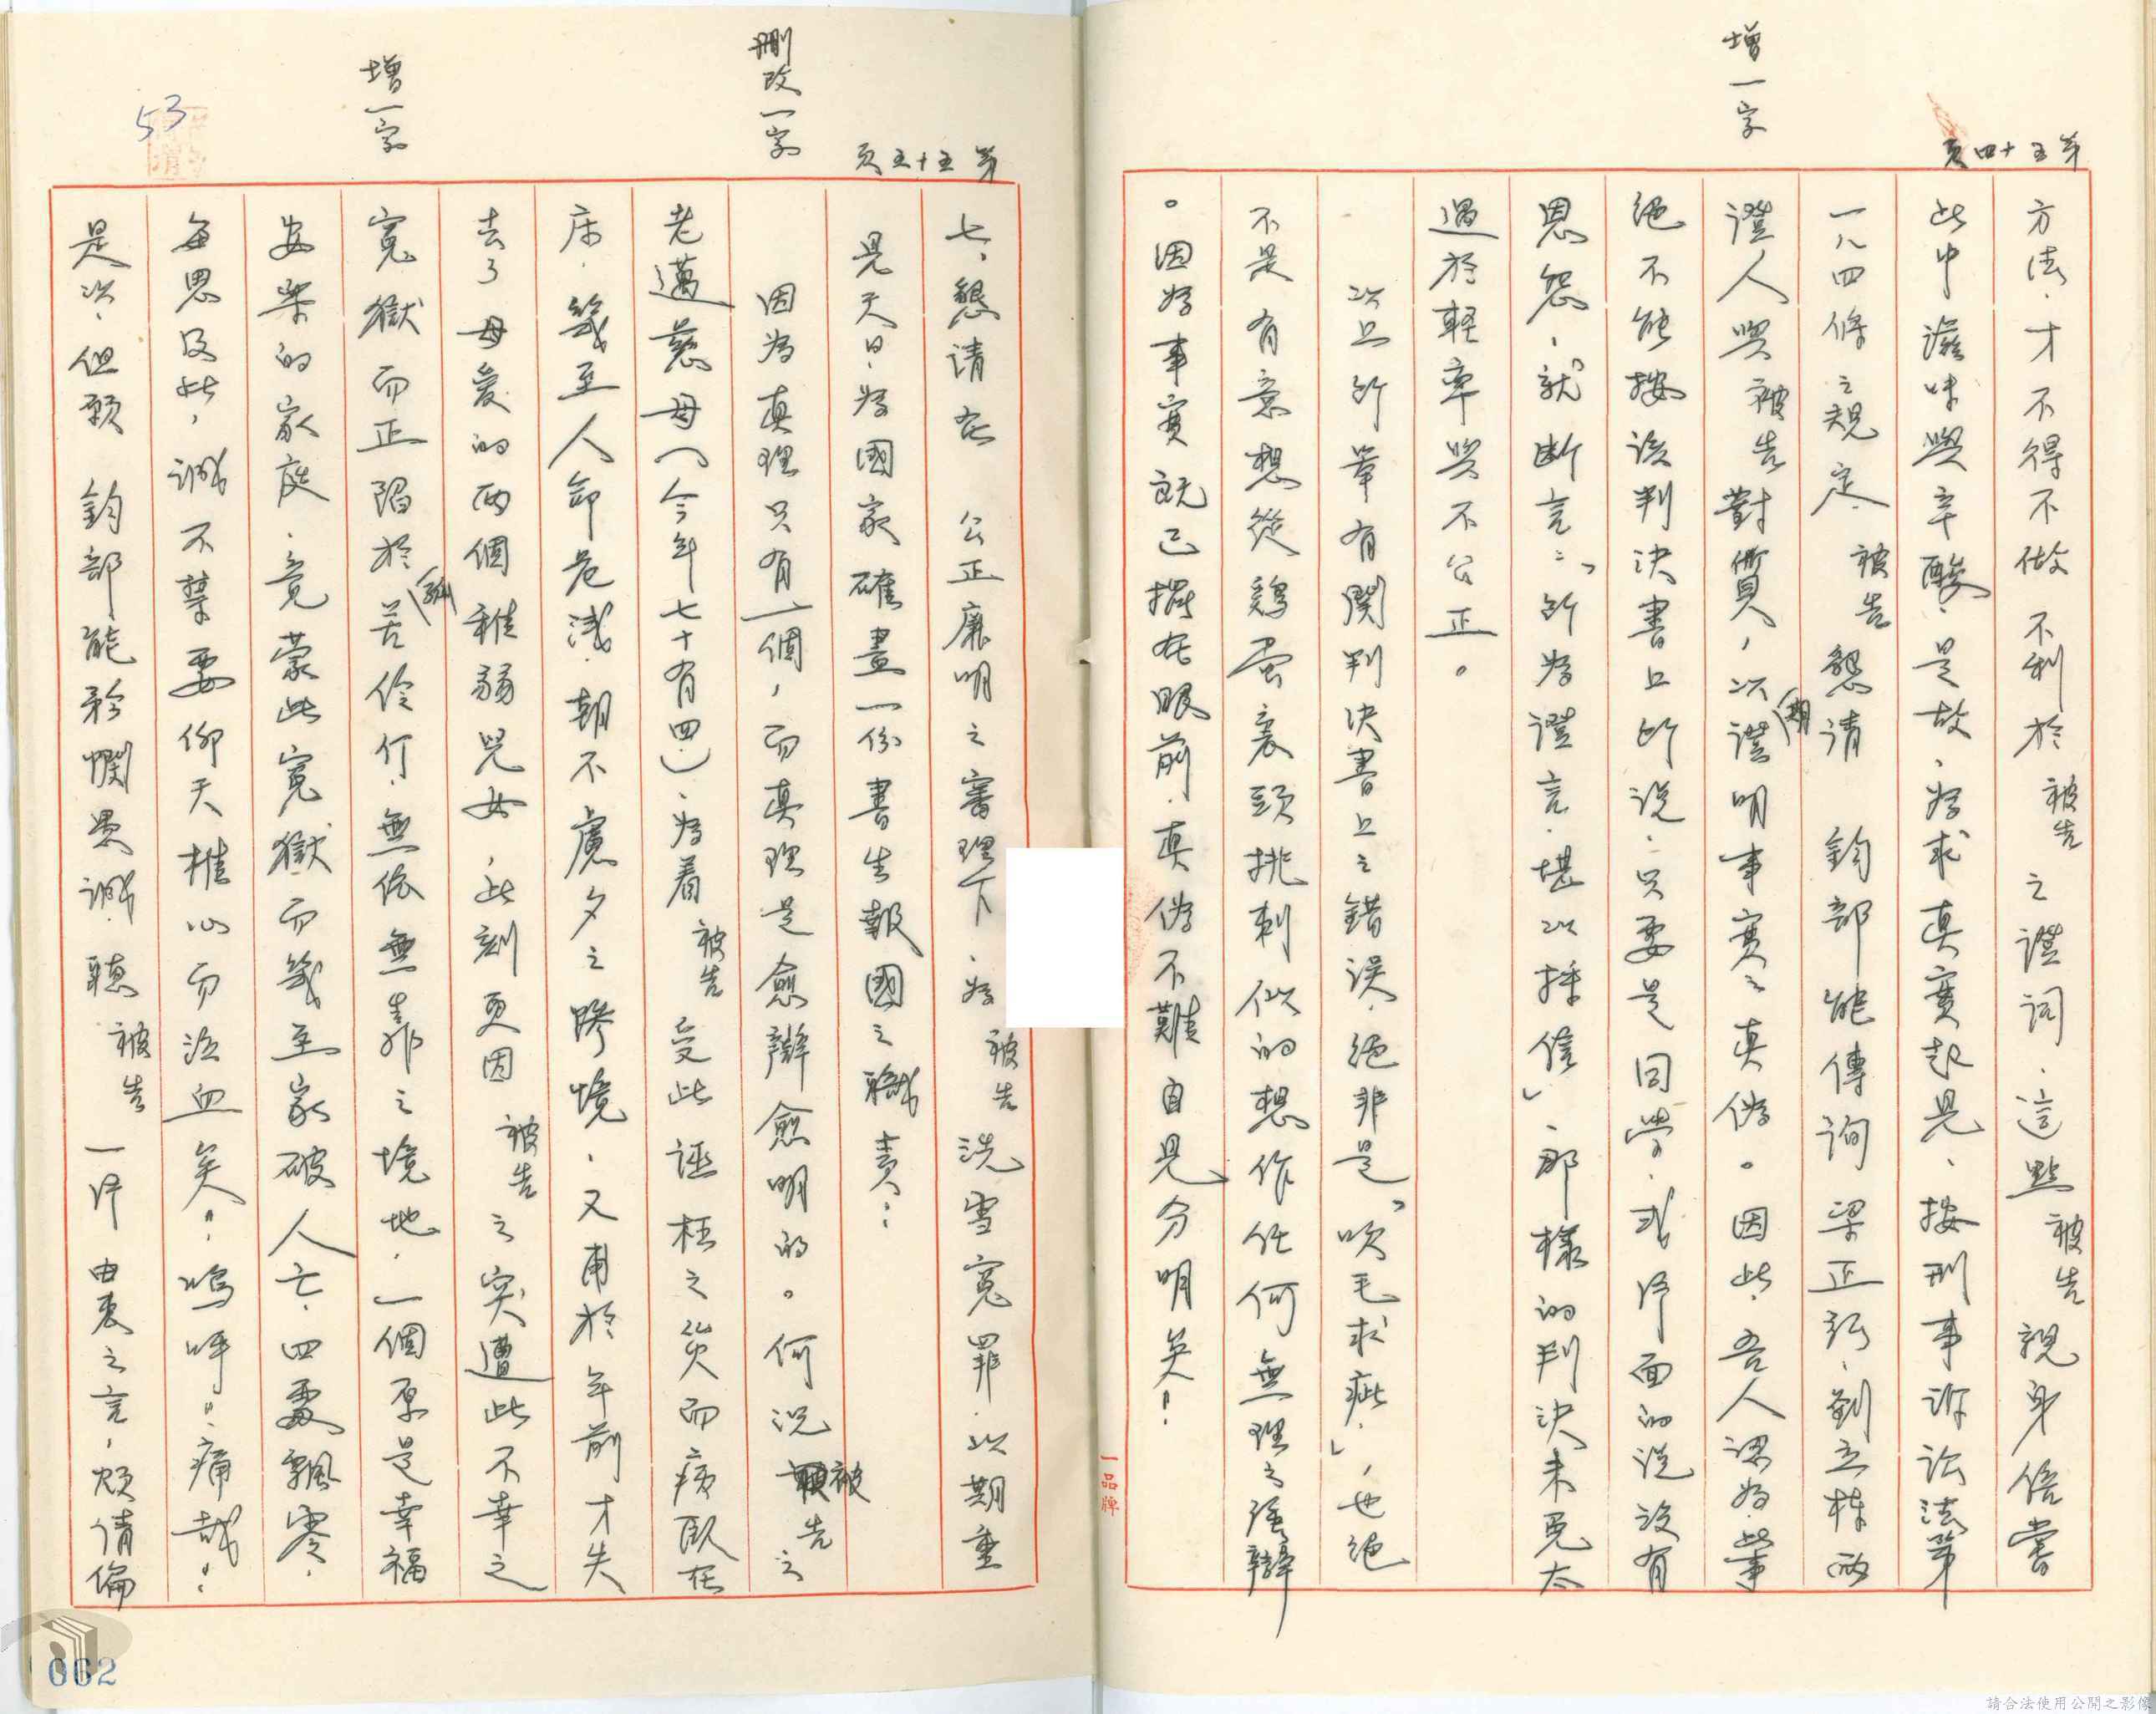 增一字
第五十四頁
方法，才不得不做不利於被告之證詞，這點被告親身倍嘗
此中滋味與辛酸，是故，為求真實起見，按刑事訴訟法第
一八四條之規定，被告懇請　鈞部能傳詢梁正弘、劉立棟兩
證人與被告對質，以期證明事實之真偽。因此，吾人認為，當事
絕不能按該判決書上所說，只要是同學，或片面的說沒有
恩怨，就斷言：「所為證言，堪以採信」，那樣的判決未免太
過於輕率與不公正。
以上所舉有關判決書上之錯誤，絕非是「吹毛求疵」，也絕
不是有意想從雞蛋裏頭挑刺似的想作任何無理之強辯
。因為事實既已擺在眼前，真偽不難自見分明矣！
一品牌
刪改一字
增一字
53
第五十五頁
七、懇請在　公正廉明之審理下，為被告洗雪冤罪，以期重
見天日，為國家確盡一份書生報國之職責：
因為真理只有一個，而真理是愈辯愈明的。何況被告之
老邁慈母（今年七十有四），為着被告受此誣枉之災而病臥在
床，幾至人命危淺，朝不慮夕之慘境，又甫於年前才失
去了母愛的兩個稚弱兒女，此刻更因被告之突遭此不幸之
冤獄而正陷於孤苦伶仃，無依無靠之境地，一個原是幸福
安樂的家庭，竟蒙此冤獄而幾至家破人亡，四處飄零，
每思及此，誠不禁要仰天椎心而泣血矣！嗚呼！痛哉！
是以，但願　鈞部能矜憫愚誠，聽被告一片由衷之言，煩請偏
062
請合法使用公開之影像